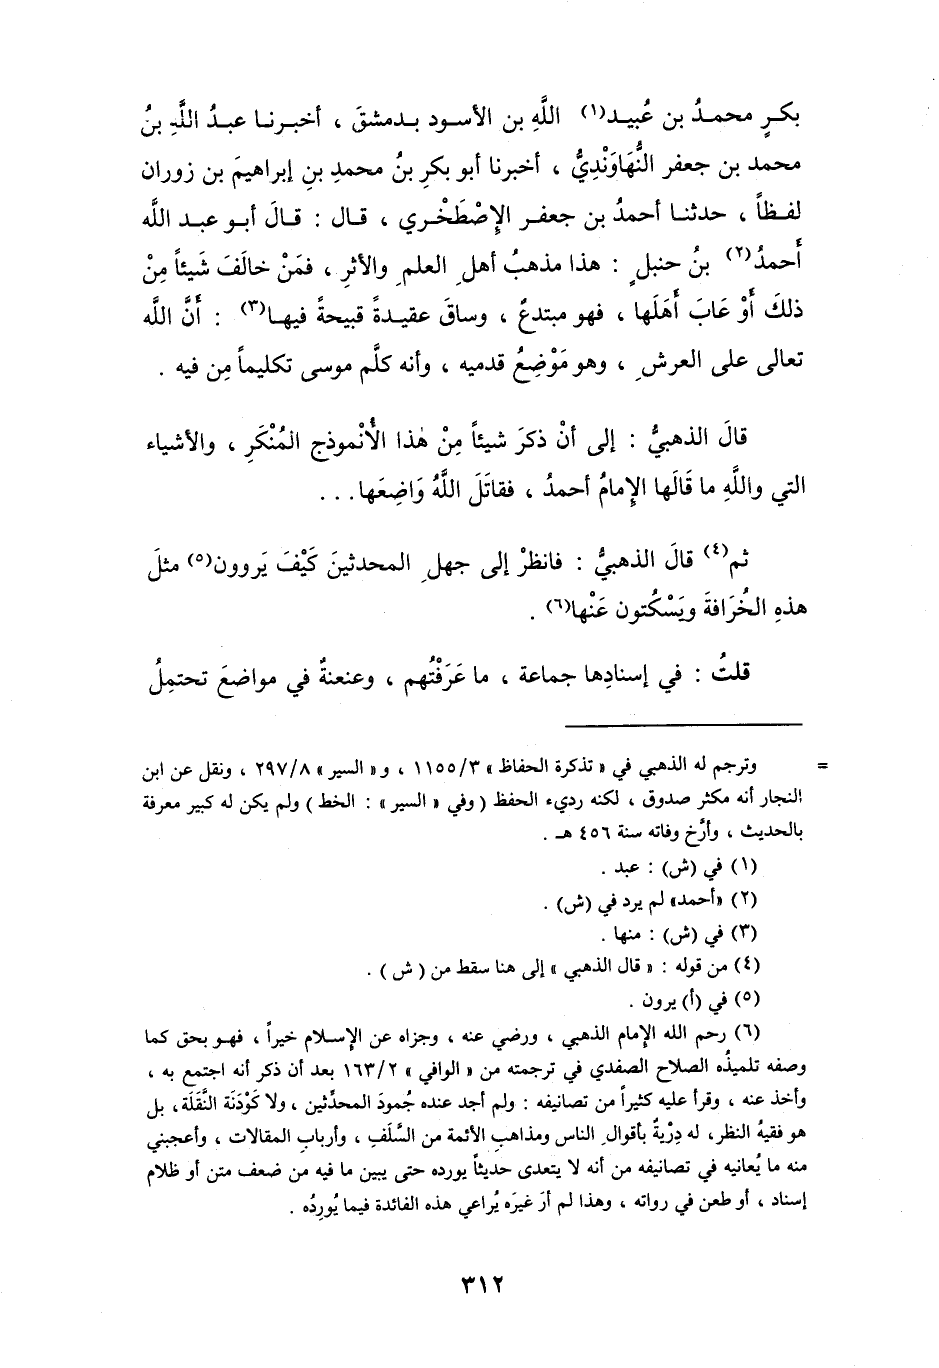 بكرٍ محمدُ بن عُبيد(١) اللَّهِ بن الأسود بدمشقَ ، أخبرنا عبدُ اللَّهِ بنُ
محمد بن جعفر النُّهَاوَنْدِيُّ ، أخبرنا أبو بكرِ بنُ محمدِ بنِ إبراهيمَ بن زوران
لفظاً ، حدثنا أحمدُ بن جعفر الإِصْطَخْري ، قال : قالَ أبو عبد الله
أَحمدُ(٢) بنُ حنبلٍ : هذا مذهبُ أهلِ العلمِ والأثرِ ، فمَنْ خالَفَ شَيئاً مِنْ
ذلكَ أَوْ عَابَ أَهْلَها ، فهو مبتدعٌ ، وساقَ عقيدةً قبيحةً فيها(٣) : أَنَّ الله
تعالى على العرشِ ، وهو مَوْضِعُ قدميه ، وأنه كلَّم موسى تكليماً مِن فيه .
قالَ الذهبيُّ : إلى أنْ ذكرَ شيئاً مِنْ هٰذا الأُنْموذج المُنْكَرِ ، والأشياء
التي واللَّهِ ما قَالَها الإِمامُ أحمدُ ، فقاتَلَ اللَّهُ وَاضِعَها . . .
ثم(٤) قالَ الذهبيُّ : فانظرْ إلى جهلِ المحدثينَ كَيْفَ يَروون(٥) مثلَ
هذهِ الخُرَافةَ ويَسْكُتون عَنْها(٦) .
قلتُ : في إسنادِها جماعة ، ما عَرَفْتُهم ، وعنعنةٌ في مواضعَ تحتمِلُ
= وترجم له الذهبي في « تذكرة الحفاظ » ١١٥٥/٣ ، و« السير » ٢٩٧/٨ ، ونقل عن ابن
النجار أنه مكثر صدوق ، لكنه رديء الحفظ ( وفي « السير » : الخط ) ولم يكن له كبير معرفة
بالحديث ، وأرَّخ وفاته سنة ٤٥٦ هـ .
(١) في (ش) : عبد .
(٢) «أحمد» لم يرد في (ش) .
(٣) في (ش) : منها .
(٤) من قوله : « قال الذهبي » إلى هنا سقط من ( ش ) .
(٥) في (أ) يرون .
(٦) رحم الله الإمام الذهبي ، ورضي عنه ، وجزاه عن الإسلام خيراً ، فهو بحق كما
وصفه تلميذُه الصلاح الصفدي في ترجمته من « الوافي » ١٦٣/٢ بعد أن ذكر أنه اجتمع به ،
وأخذ عنه ، وقرأ عليه كثيراً من تصانيفه : ولم أجد عنده جُمودَ المحدِّثين ، ولا كَوْدَنَة النَّقَلَة، بل
هو فقيهُ النظر، له دِرْيةٌ بأقوالِ الناس ومذاهبِ الأئمة من السَّلَفِ ، وأربابِ المقالات ، وأعجبني
منه ما يُعانيه في تصانيفه من أنه لا يتعدى حديثاً يورده حتى يبين ما فيه من ضعف متن أو ظلام
إسناد ، أو طعن في رواته ، وهذا لم أرَ غيرَه يُراعي هذه الفائدة فيما يُورِدُه .
٣١٢